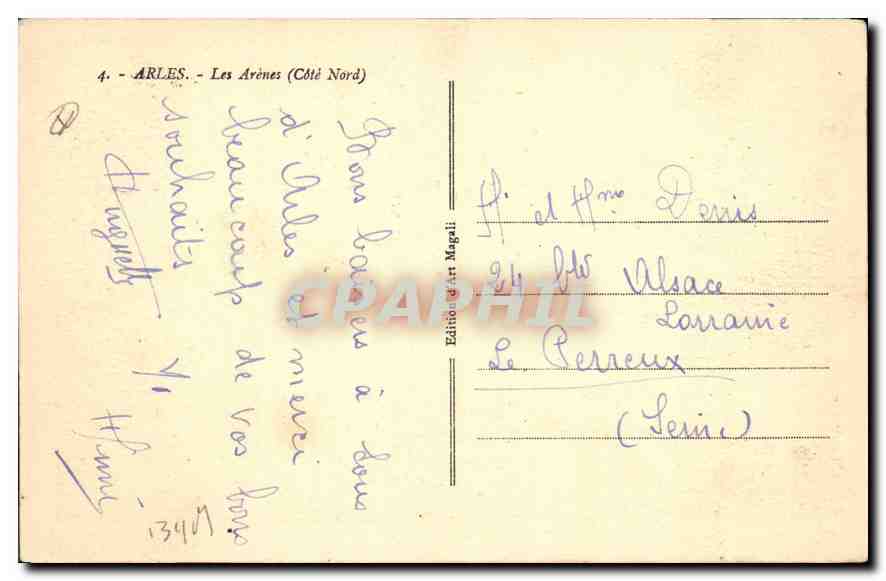 4. - ARLES. - Les Arènes (Côté Nord)
Bons baisers à tous
d'Arles et merci
beaucoup de vos bons
souhaits
Edition d'Art Magali
CPAPHIL
Mr et Mme Denis
24 Bld Alsace
Lorraine
Le Perreux
(Seine)